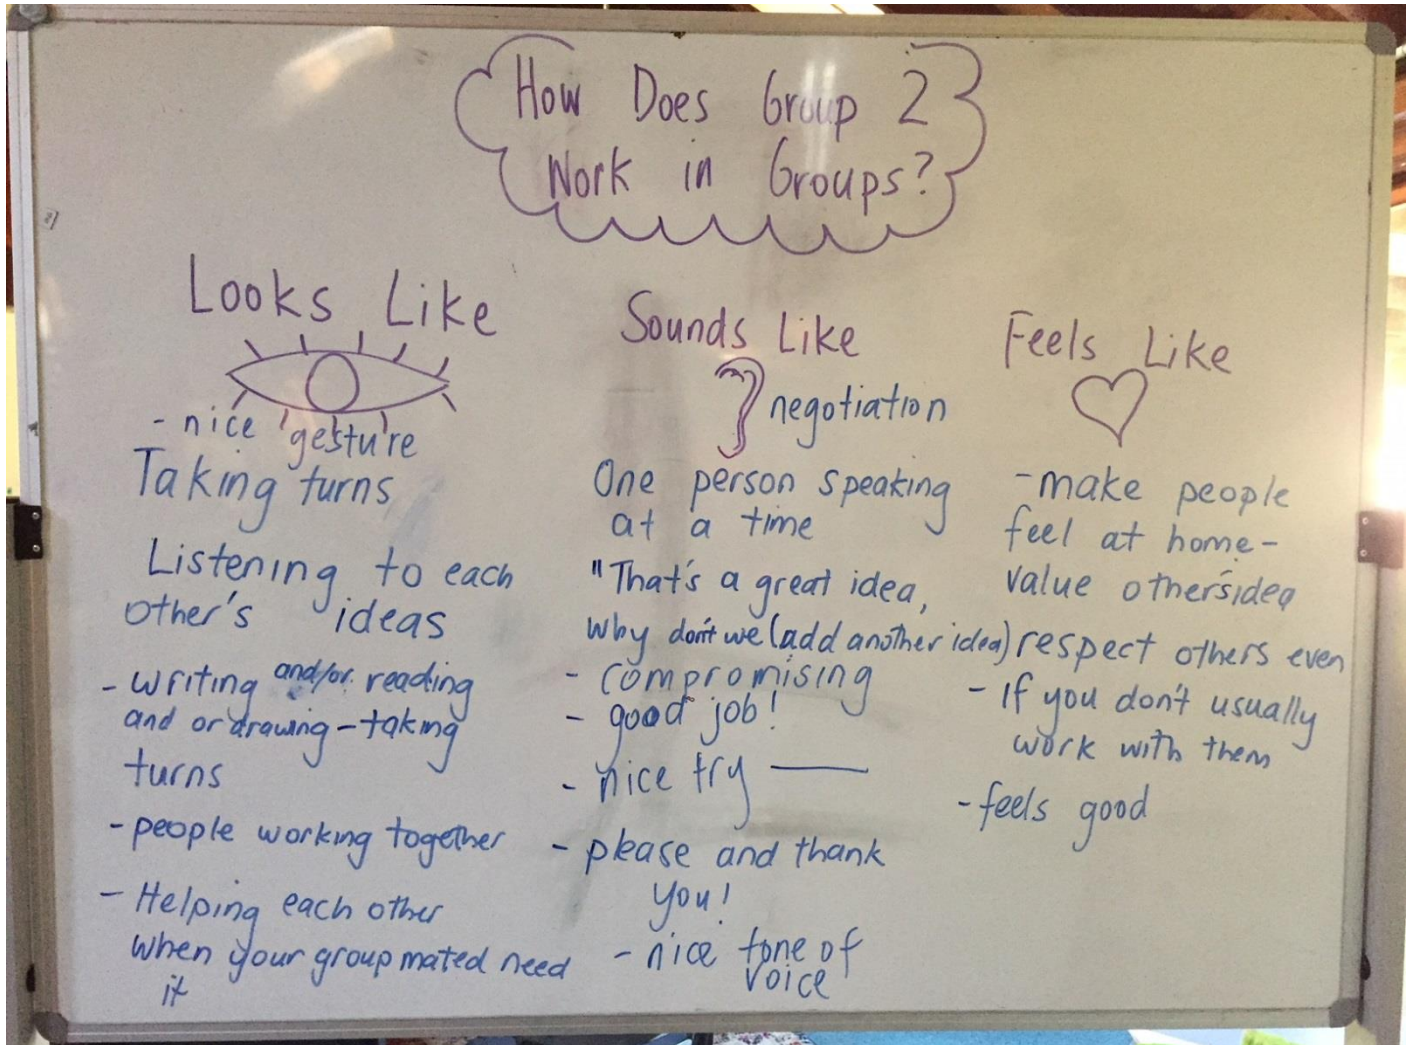 How Does Group 2
Work in Groups?
Looks Like
- nice gesture
Taking turns
Listening to each
other's ideas
- writing and/or reading
and or drawing - taking
turns
- people working together
- Helping each other
when your group mated need
it
Sounds Like
negotiation
One person speaking
at a time
"That's a great idea,
Why don't we (add another idea)
- compromising
- good job!
- nice try ——
- please and thank
you!
- nice tone of
voice
Feels Like
- make people
feel at home -
value others'idea
respect others even
- If you don't usually
work with them
- feels good